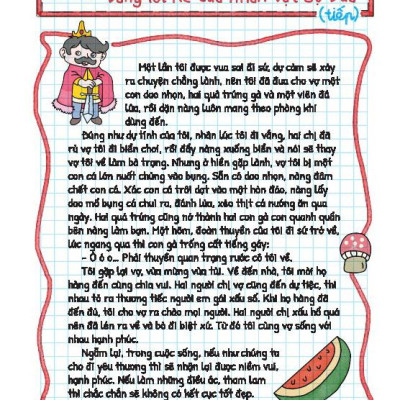 (tiếp)
Một lần tôi được vua sai đi sứ, dự cảm sẽ xảy
ra chuyện chẳng lành, nên tôi đã đưa cho vợ một
con dao nhọn, hai quả trứng gà và một viên đá
lửa, rồi dặn nàng luôn mang theo phòng khi
dùng đến.
Đúng như dự tính của tôi, nhân lúc tôi đi vắng, hai chị đã
rủ vợ tôi đi biển chơi, rồi đẩy nàng xuống biển và nói sẽ thay
vợ tôi về làm bà trạng. Nhưng ở hiền gặp lành, vợ tôi bị một
con cá lớn nuốt chửng vào bụng. Sẵn có dao nhọn, nàng đâm
chết con cá. Xác con cá trôi dạt vào một hòn đảo, nàng lấy
dao mổ bụng cá chui ra, đánh lửa, xẻo thịt cá nướng ăn qua
ngày. Hai quả trứng cũng nở thành hai con gà con quanh quẩn
bên nàng làm bạn. Một hôm, đoàn thuyền của tôi đi sứ trở về,
lúc ngang qua thì con gà trống cất tiếng gáy:
- Ò ó o... Phải thuyền quan trạng rước cô tôi về.
Tôi gặp lại vợ, vừa mừng vừa tủi. Về đến nhà, tôi mời họ
hàng đến cùng chia vui. Hai người chị vợ cũng đến dự tiệc, thi
nhau tỏ ra thương tiếc người em gái xấu số. Khi họ hàng đã
đến đủ, tôi cho vợ ra chào mọi người. Hai người chị xấu hổ quá
nên đã lẻn ra về và bỏ đi biệt xứ. Từ đó tôi cùng vợ sống với
nhau hạnh phúc.
Ngẫm lại, trong cuộc sống, nếu như chúng ta
cho đi yêu thương thì sẽ nhận lại được niềm vui,
hạnh phúc. Nếu làm những điều ác, tham lam
thì chắc chắn sẽ không có kết cục tốt đẹp.